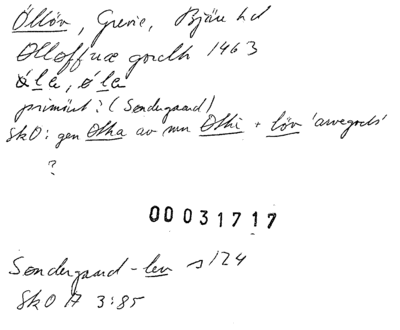 Öllöv, Grevie, Bjäre hd
Olloffuæ gordh 1463
primärt? (Søndergaard)
SkO: gen Otha av mn Othi + löv 'arvegods'
?
00031717
Søndergaard -lev s 124
SkO A 3:85